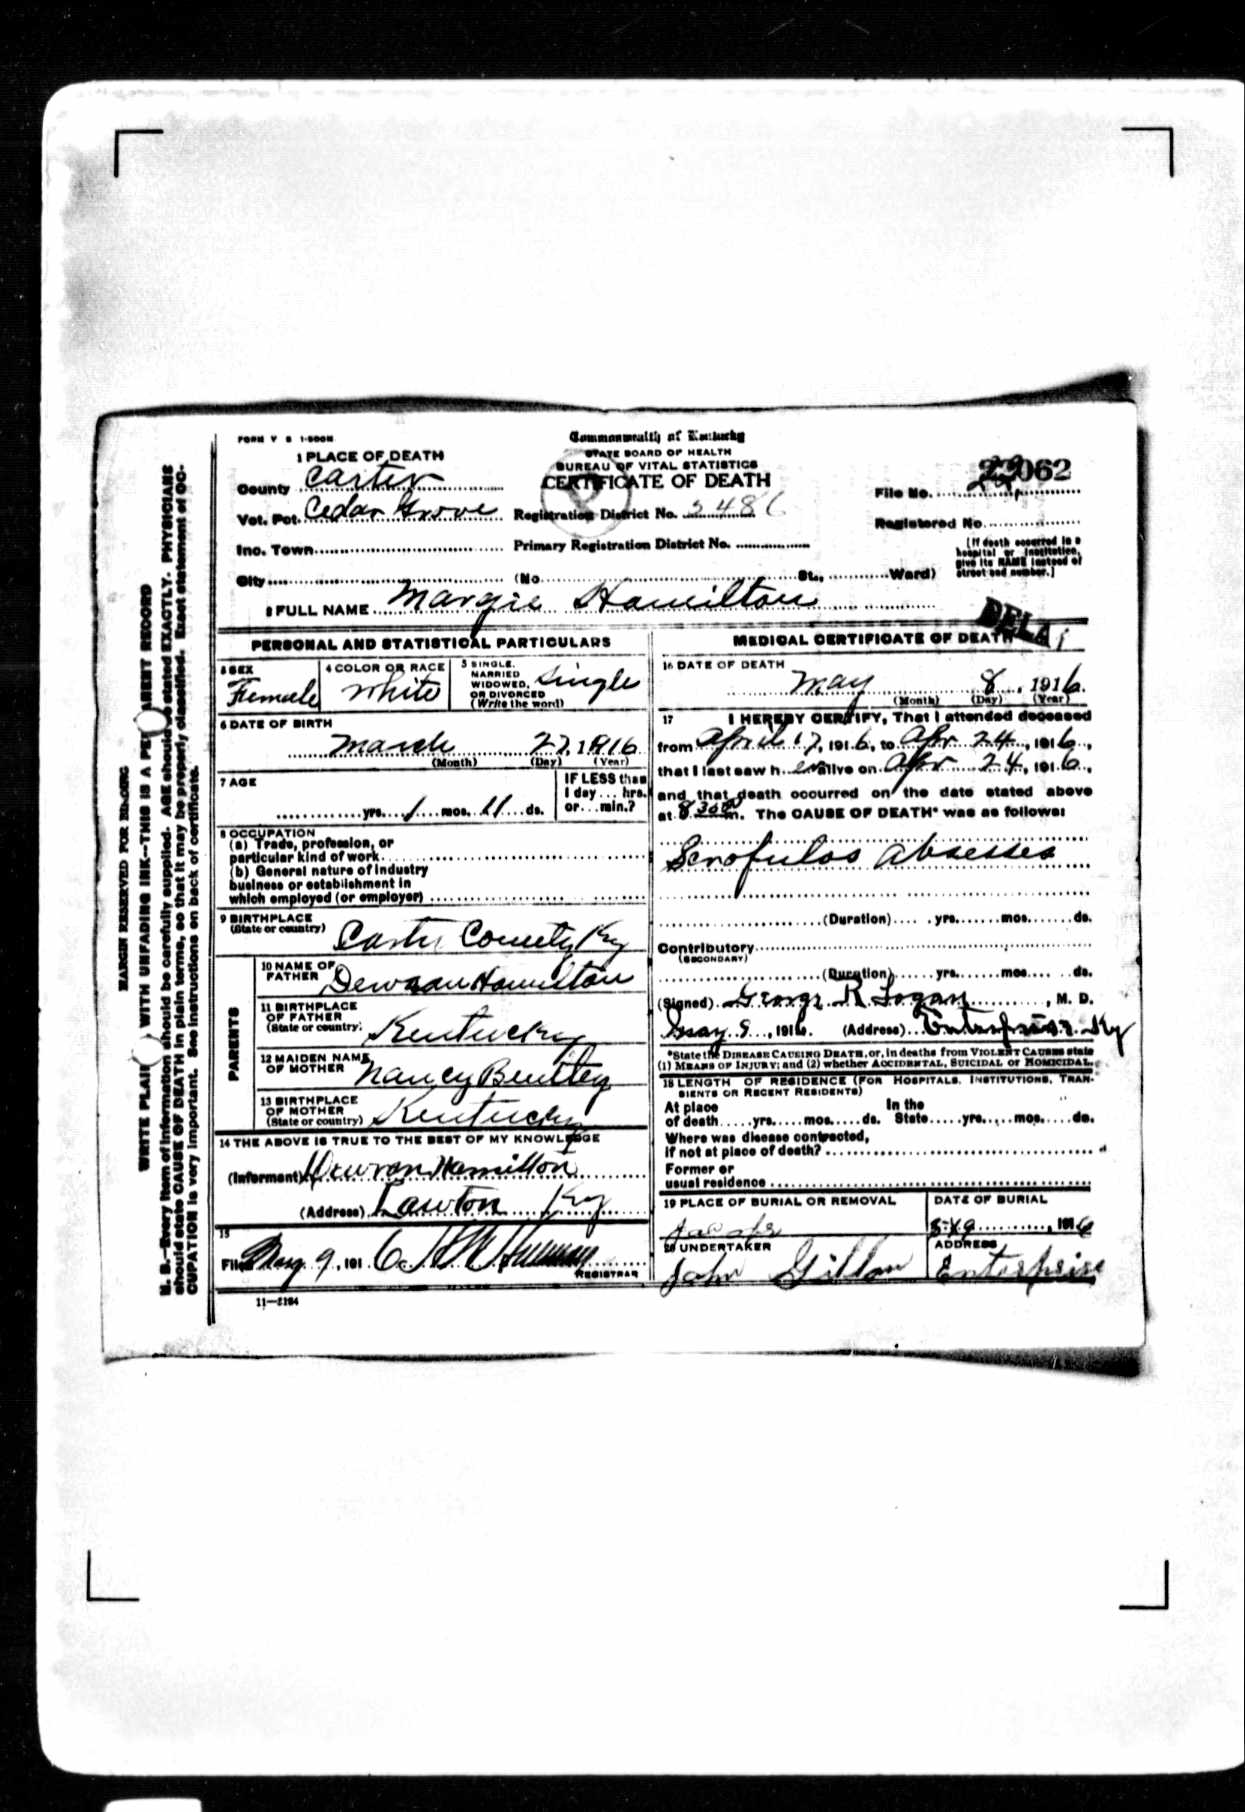 FORM V S 1-500M
Commonwealth of Kentucky
STATE BOARD OF HEALTH
BUREAU OF VITAL STATISTICS
CERTIFICATE OF DEATH
1 PLACE OF DEATH
County Carter
Vot. Pct. Cedar Grove
Registration District No.
File No.
Registered No.
Inc. Town
Primary Registration District No.
City (No. St., Ward)
[If death occurred in a hospital or institution, give its NAME instead of street and number.]
2 FULL NAME Margie Hamilton
PERSONAL AND STATISTICAL PARTICULARS
3 SEX
Female
4 COLOR OR RACE
White
5 SINGLE, MARRIED WIDOWED, OR DIVORCED (Write the word)
Single
6 DATE OF BIRTH
March 27, 1916
(Month) (Day) (Year)
7 AGE
yrs. 1 mos. 11 ds.
IF LESS than 1 day... hrs. or... min.?
8 OCCUPATION
(a) Trade, profession, or
particular kind of work
(b) General nature of industry
business or establishment in
which employed (or employer)
9 BIRTHPLACE
(State or country)
Carter County Ky
PARENTS
10 NAME OF FATHER
Hamilton
11 BIRTHPLACE OF FATHER
(State or country)
Kentucky
12 MAIDEN NAME OF MOTHER
Nancy
13 BIRTHPLACE OF MOTHER
(State or country)
Kentucky
14 THE ABOVE IS TRUE TO THE BEST OF MY KNOWLEDGE
(Informant) Hamilton
(Address) Lawton Ky
15
Filed May 9, 1916
REGISTRAR
11—2184
MEDICAL CERTIFICATE OF DEATH
16 DATE OF DEATH
May 8, 1916.
(Month) (Day) (Year)
17 I HEREBY CERTIFY, That I attended deceased
from April 17, 1916, to Apr 24, 1916,
that I last saw her alive on Apr 24, 1916,
and that death occurred on the date stated above
at 8 30 m. The CAUSE OF DEATH* was as follows:
Scrofulos absesses
(Duration) yrs. mos. ds.
Contributory
(SECONDARY)
(Duration) yrs. mos. ds.
(Signed) George R Logan, M. D.
May 9, 1916. (Address) Enterprise Ky
*State the DISEASE CAUSING DEATH, or, in deaths from VIOLENT CAUSES state
(1) MEANS OF INJURY; and (2) whether ACCIDENTAL, SUICIDAL or HOMICIDAL.
18 LENGTH OF RESIDENCE (FOR HOSPITALS, INSTITUTIONS, TRAN-
SIENTS OR RECENT RESIDENTS)
At place In the
of death yrs. mos. ds. State yrs. mos. ds.
Where was disease contracted,
If not at place of death?
Former or
usual residence
19 PLACE OF BURIAL OR REMOVAL
DATE OF BURIAL
1916
20 UNDERTAKER
John
ADDRESS
Enterprise
MARGIN RESERVED FOR BINDING
WRITE PLAINLY WITH UNFADING INK—THIS IS A PERMANENT RECORD
N. B.—Every item of information should be carefully supplied. AGE should be stated EXACTLY. PHYSICIANS
should state CAUSE OF DEATH in plain terms, so that it may be properly classified. Exact statement of OC-
CUPATION is very important. See instructions on back of certificate.